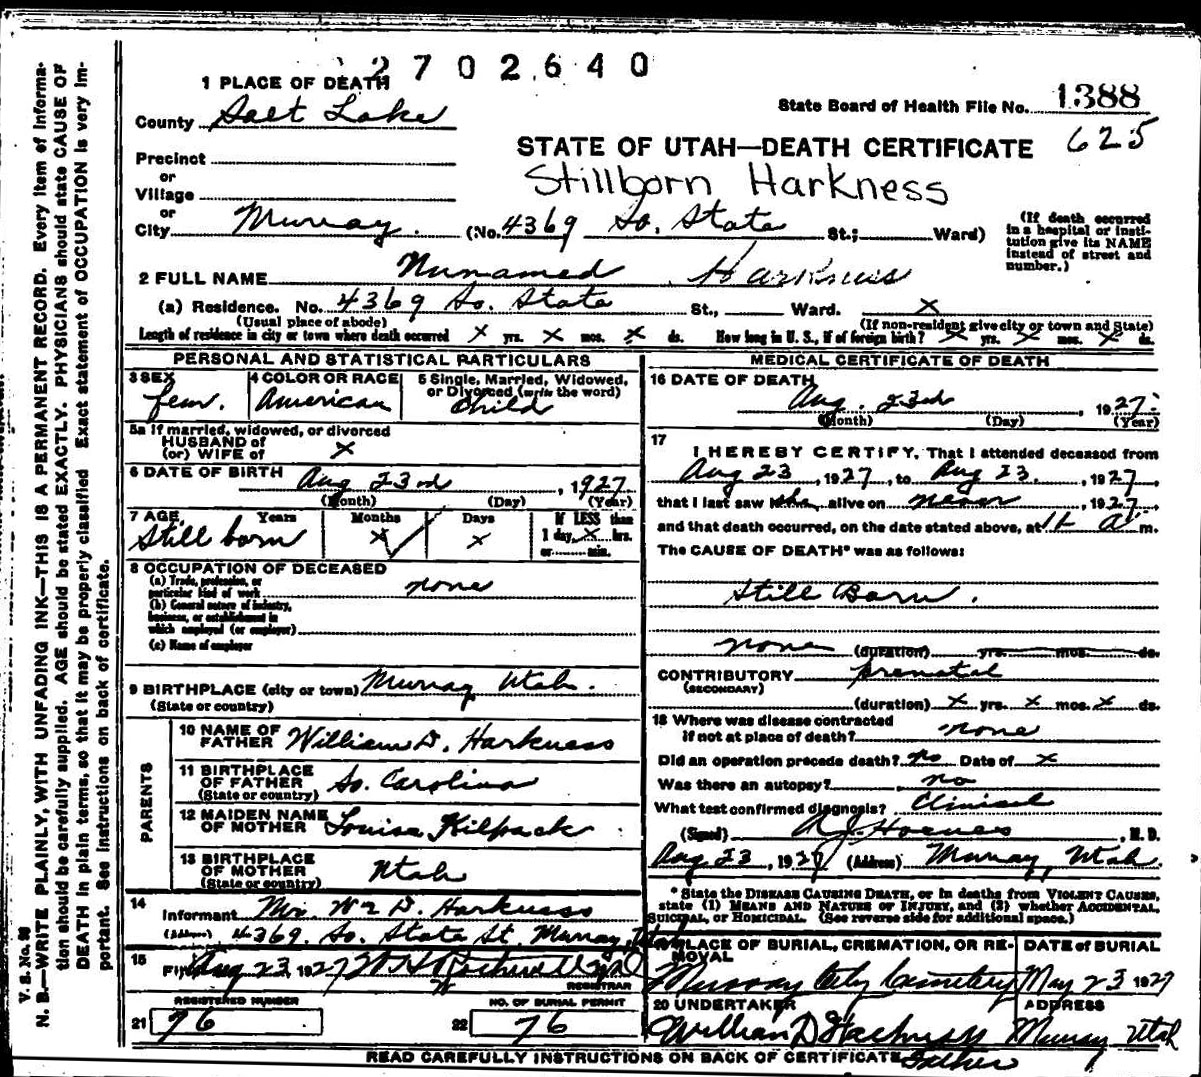 2702640
1 PLACE OF DEATH
County Salt Lake
State Board of Health File No. 1388
625
STATE OF UTAH—DEATH CERTIFICATE
Stillborn Harkness
Precinct
or
Village
or
City Murray. (No. 4369 So. State St.; Ward)
(If death occurred in a hospital or insti-
tution give its NAME
instead of street and
number.)
2 FULL NAME Unnamed Harkness
(a) Residence. No. 4369 So. State St., Ward. X
(Usual place of abode)
(If non-resident give city or town and State)
Length of residence in city or town where death occurred X yrs. X mos. X ds. How long in U. S., if of foreign birth? X yrs. X mos. X ds.
PERSONAL AND STATISTICAL PARTICULARS
3 SEX fem.
4 COLOR OR RACE American
5 Single, Married, Widowed,
or Divorced (write the word)
Child
5a If married, widowed, or divorced
HUSBAND of
(or) WIFE of X
6 DATE OF BIRTH Aug 23rd, 1927
(Month) (Day) (Year)
7 AGE Years Months Days If LESS than
Still born X X 1 day, X hrs.
or min.
8 OCCUPATION OF DECEASED
(a) Trade, profession, or
particular kind of work none
(b) General nature of industry,
business, or establishment in
which employed (or employer)
(c) Name of employer
9 BIRTHPLACE (city or town) Murray Utah.
(State or country)
PARENTS
10 NAME OF
FATHER William D. Harkness
11 BIRTHPLACE
OF FATHER So. Carolina
(State or country)
12 MAIDEN NAME
OF MOTHER Louisa Kilpack
13 BIRTHPLACE
OF MOTHER Utah
(State or country)
14 Informant Mr. Wm D. Harkness
(Address) 4369. So. State St. Murray, Utah
15 Filed Aug 23, 1927 REGISTRAR
REGISTERED NUMBER NO. OF BURIAL PERMIT
21 76 22 76
MEDICAL CERTIFICATE OF DEATH
16 DATE OF DEATH
Aug. 23rd, 1927.
(Month) (Day) (Year)
17
I HEREBY CERTIFY, That I attended deceased from
Aug 23, 1927, to Aug 23., 1927,
that I last saw she alive on never, 1927.
and that death occurred, on the date stated above, at A m.
The CAUSE OF DEATH* was as follows:
Still Born.
none (duration) yrs. mos. ds.
CONTRIBUTORY prenatal
(SECONDARY)
(duration) X yrs. X mos. X ds.
18 Where was disease contracted
if not at place of death? none
Did an operation precede death? no Date of X
Was there an autopsy? no
What test confirmed diagnosis? Clinical
(Signed) , M. D.
Aug 23, 1927 (Address) Murray, Utah.
* State the DISEASE CAUSING DEATH, or in deaths from VIOLENT CAUSES,
state (1) MEANS AND NATURE OF INJURY, and (2) whether ACCIDENTAL,
SUICIDAL, OR HOMICIDAL. (See reverse side for additional space.)
PLACE OF BURIAL, CREMATION, OR RE-
MOVAL
Murray City Cemetery
DATE OF BURIAL
May 23 1927
20 UNDERTAKER
William D Harkness
Father
ADDRESS
Murray Utah
READ CAREFULLY INSTRUCTIONS ON BACK OF CERTIFICATE
V. S. No. 98
N. B.—WRITE PLAINLY, WITH UNFADING INK—THIS IS A PERMANENT RECORD. Every item of informa-
tion should be carefully supplied. AGE should be stated EXACTLY. PHYSICIANS should state CAUSE OF
DEATH in plain terms, so that it may be properly classified Exact statement of OCCUPATION is very im-
portant. See instructions on back of certificate.